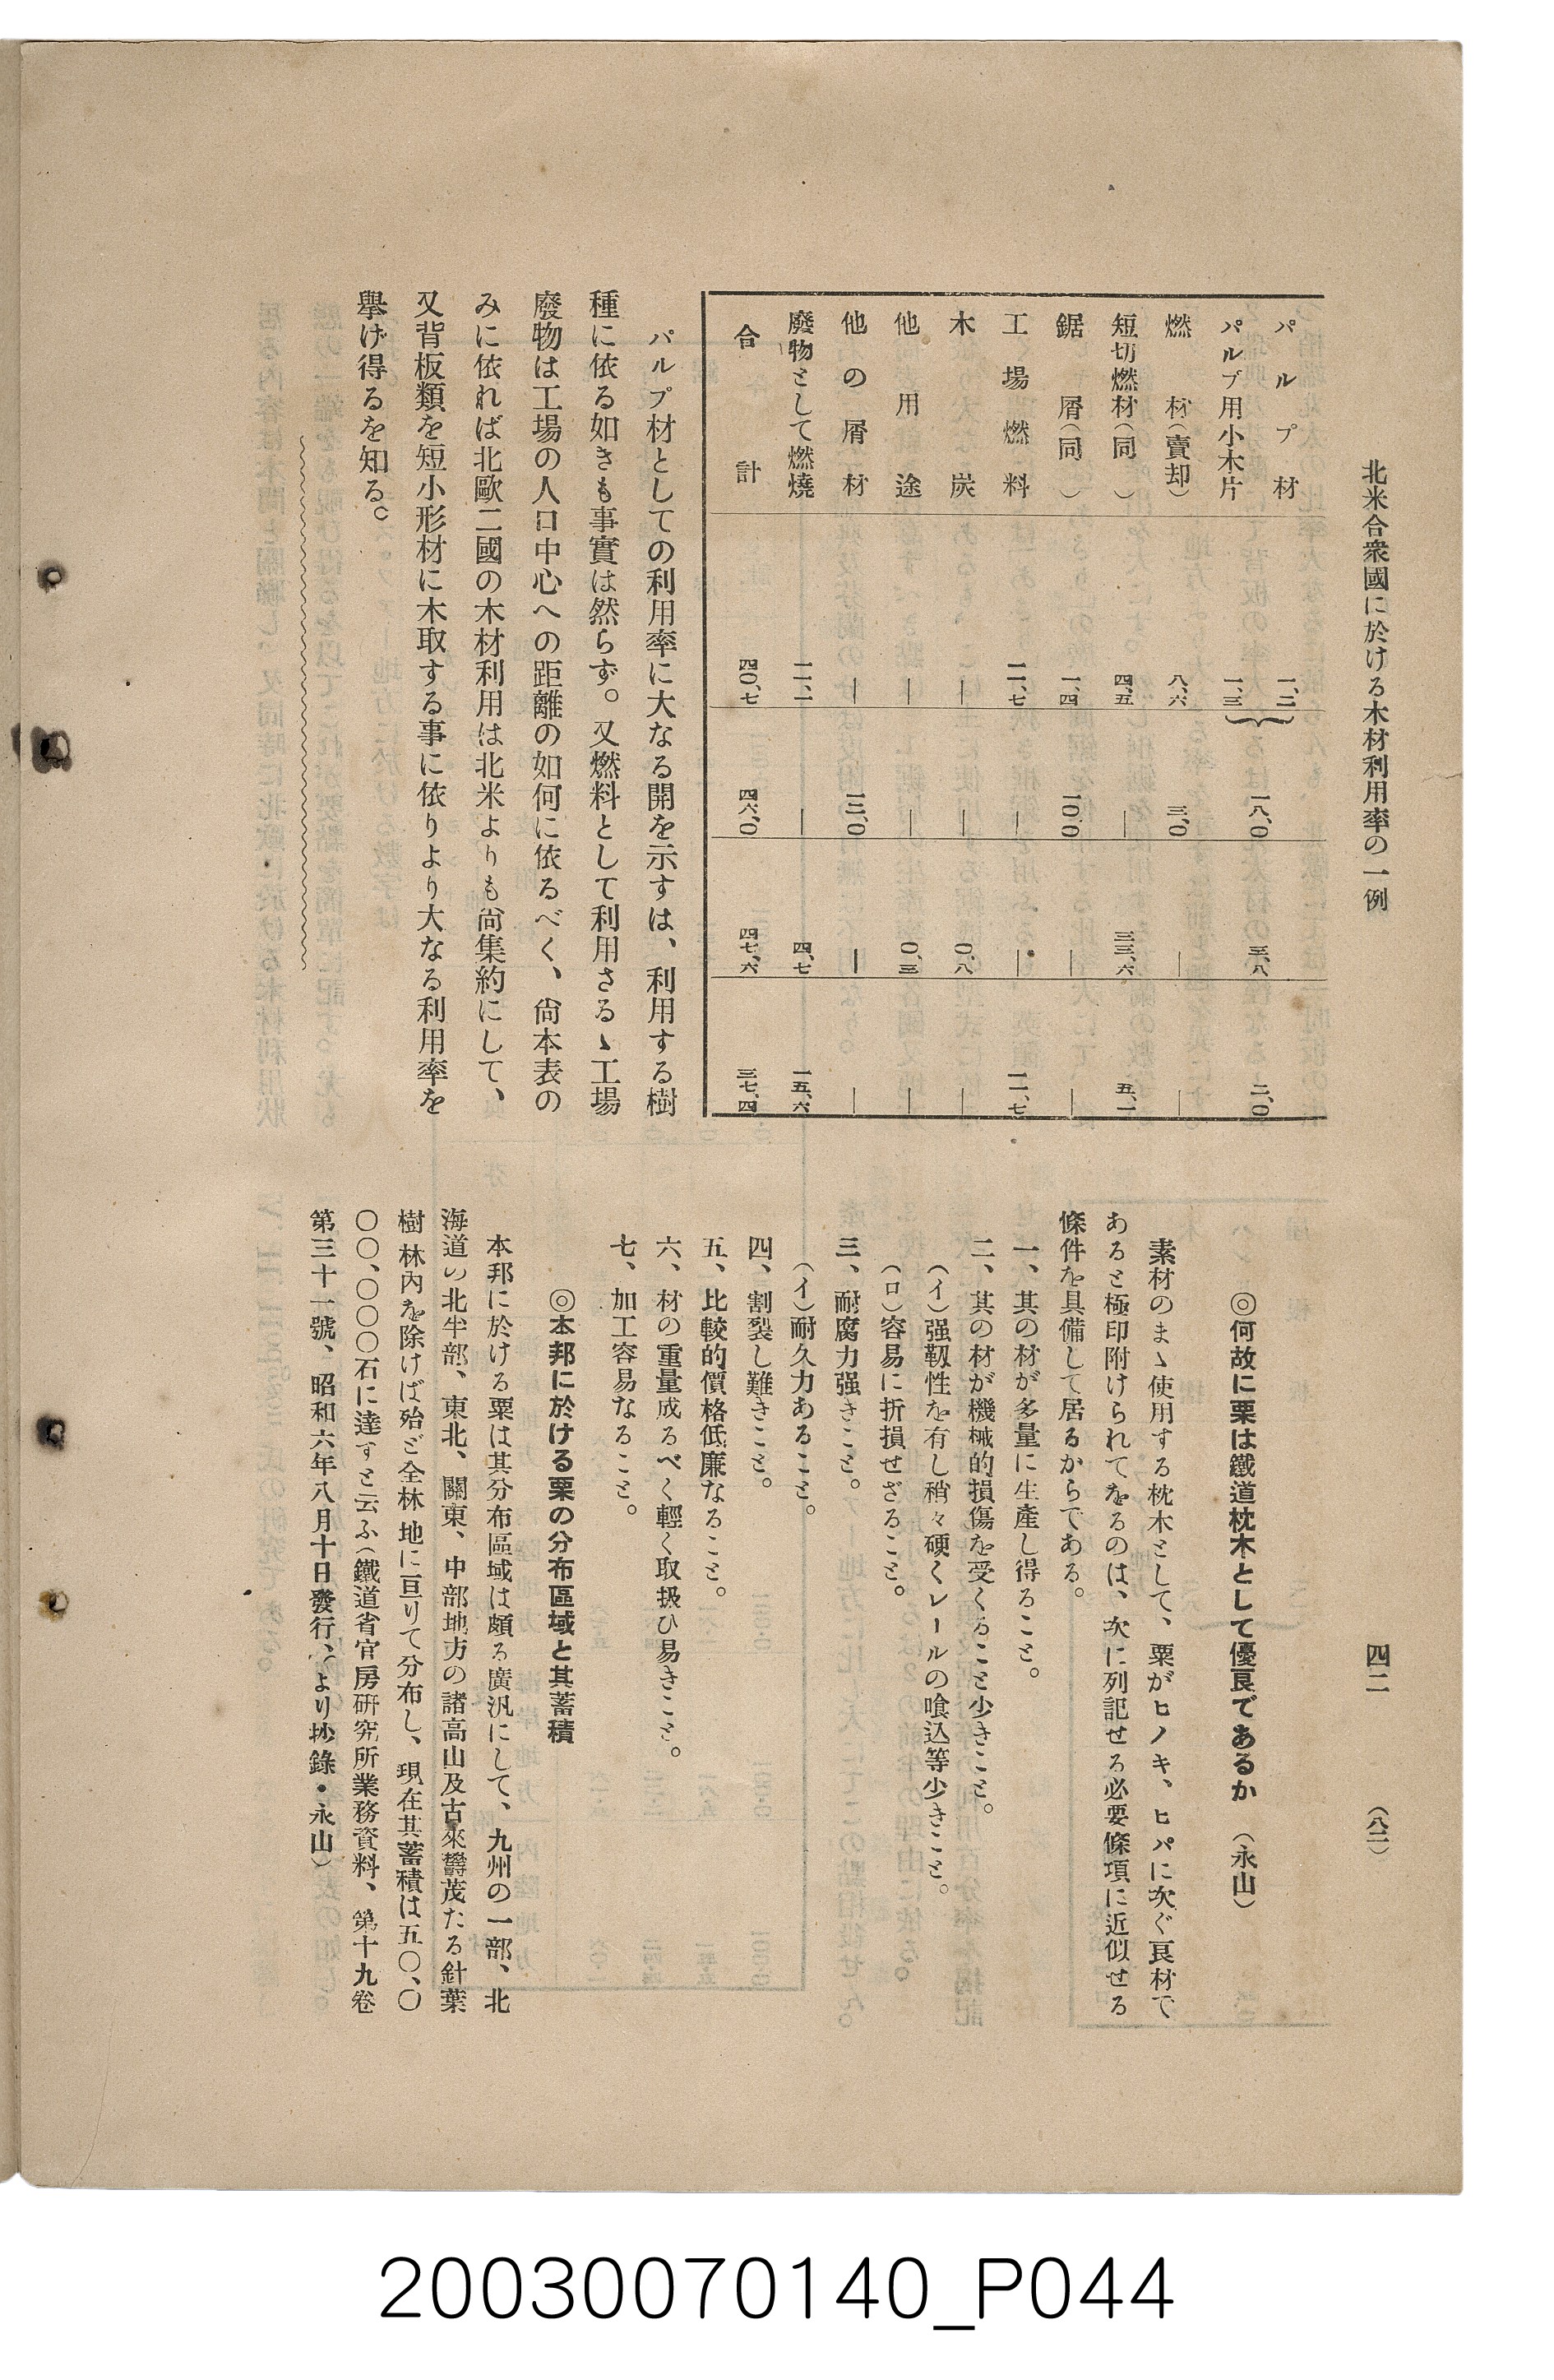 北米合衆國に於ける木材利用率の一例
四二
(八二)
パルプ材 一、二 一八、〇 三、八 二、〇
パルプ用小木片 一、三
燃材(賣却) 八、六 三、〇 ― ―
短切燃材(同) 四、五 ― 三三、六 五、一
鋸屑(同) 一、四 一〇、〇 ― ―
工場燃料 一一、七 ― ― 一一、七
木炭 ― ― 〇、八 ―
他用途 ― ― 〇、三 ―
他の屑材 ― 一二、〇 ― ―
廢物として燃燒 一一、一 ― 四、七 一五、六
合計 四〇、七 四六、〇 四七、六 三七、四
パルプ材としての利用率に大なる開を示すは、利用する樹
種に依る如きも事實は然らず。又燃料として利用さるゝ工場
廢物は工場の人口中心への距離の如何に依るべく、尙本表の
みに依れば北歐二國の木材利用は北米よりも尙集約にして、
又背板類を短小形材に木取する事に依りより大なる利用率を
擧げ得るを知る。
◎何故に栗は鐵道枕木として優良であるか (永山)
素材のまゝ使用する枕木として、栗がヒノキ、ヒバに次ぐ良材で
あると極印附けられてをるのは、次に列記せる必要條項に近似せる
條件を具備して居るからである。
一、其の材が多量に生產し得ること。
二、其の材が機械的損傷を受くること少きこと。
(イ)强靱性を有し稍々硬くレールの喰込等少きこと。
(ロ)容易に折損せざること。
三、耐腐力强きこと。
(イ)耐久力あること。
四、割裂し難きこと。
五、比較的價格低廉なること。
六、材の重量成るべく輕く取扱ひ易きこと。
七、加工容易なること。
◎本邦に於ける栗の分布區域と其蓄積
本邦に於ける栗は其分布區域は頗る廣汎にして、九州の一部、北
海道の北半部、東北、關東、中部地方の諸高山及古來欝茂たる針葉
樹林內を除けば殆ど全林地に亘りて分布し、現在其蓄積は五〇、〇
〇〇、〇〇〇石に達すと云ふ(鐵道省官房硏究所業務資料、第十九卷
第三十一號、昭和六年八月十日發行、より抄錄・永山)
20030070140_P044